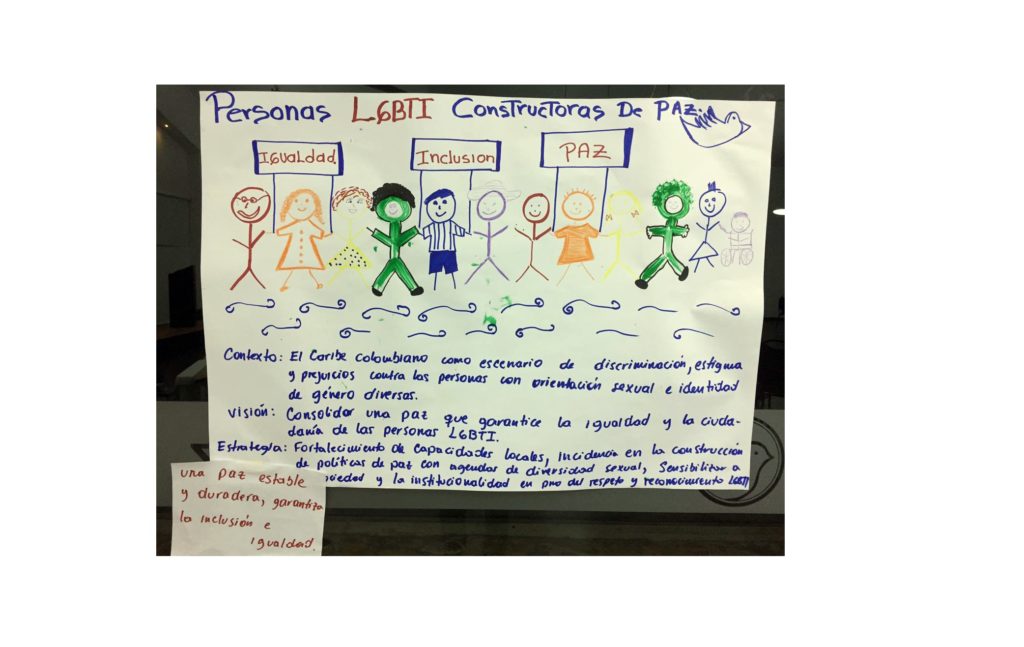 Personas LGBTI Constructoras De PAZ
IGUALdad
Inclusion
PAZ
Contexto: El Caribe colombiano como escenario de discriminación, estigma
y prejuicios contra las personas con orientación sexual e identidad
de género diversas.
Visión: Consolidar una paz que garantice la igualdad y la ciuda-
danía de las personas LGBTI.
Estrategia: Fortalecimiento de capacidades locales, incidencia en la construcción
de políticas de paz con agendas de diversidad sexual, Sensibilizar a
y la institucionalidad en pro del respeto y reconocimiento LGBTI
una paz estable
y duradera, garantiza
la inclusión e
igualdad.